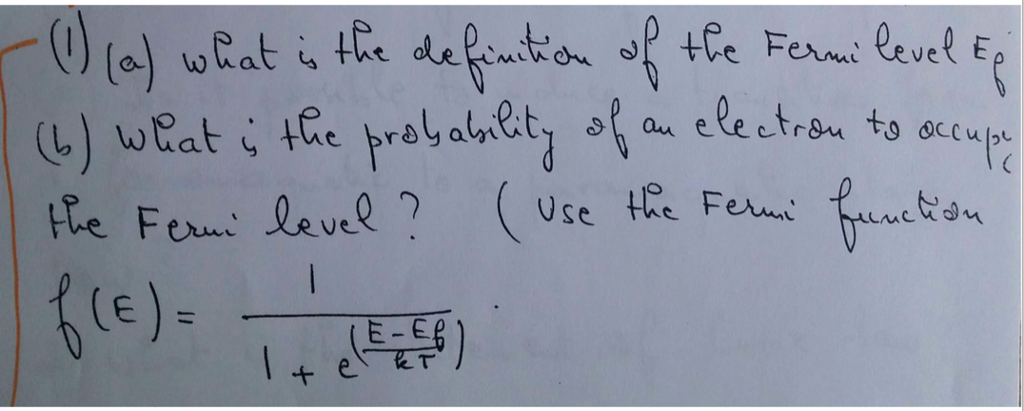 (1) (a) what is the definition of the Fermi level Ef
(b) What is the probability of an electron to occupy
the Fermi level? (Use the Fermi function
f(E) = 1 / (1 + e^((E-Ef)/kT)).